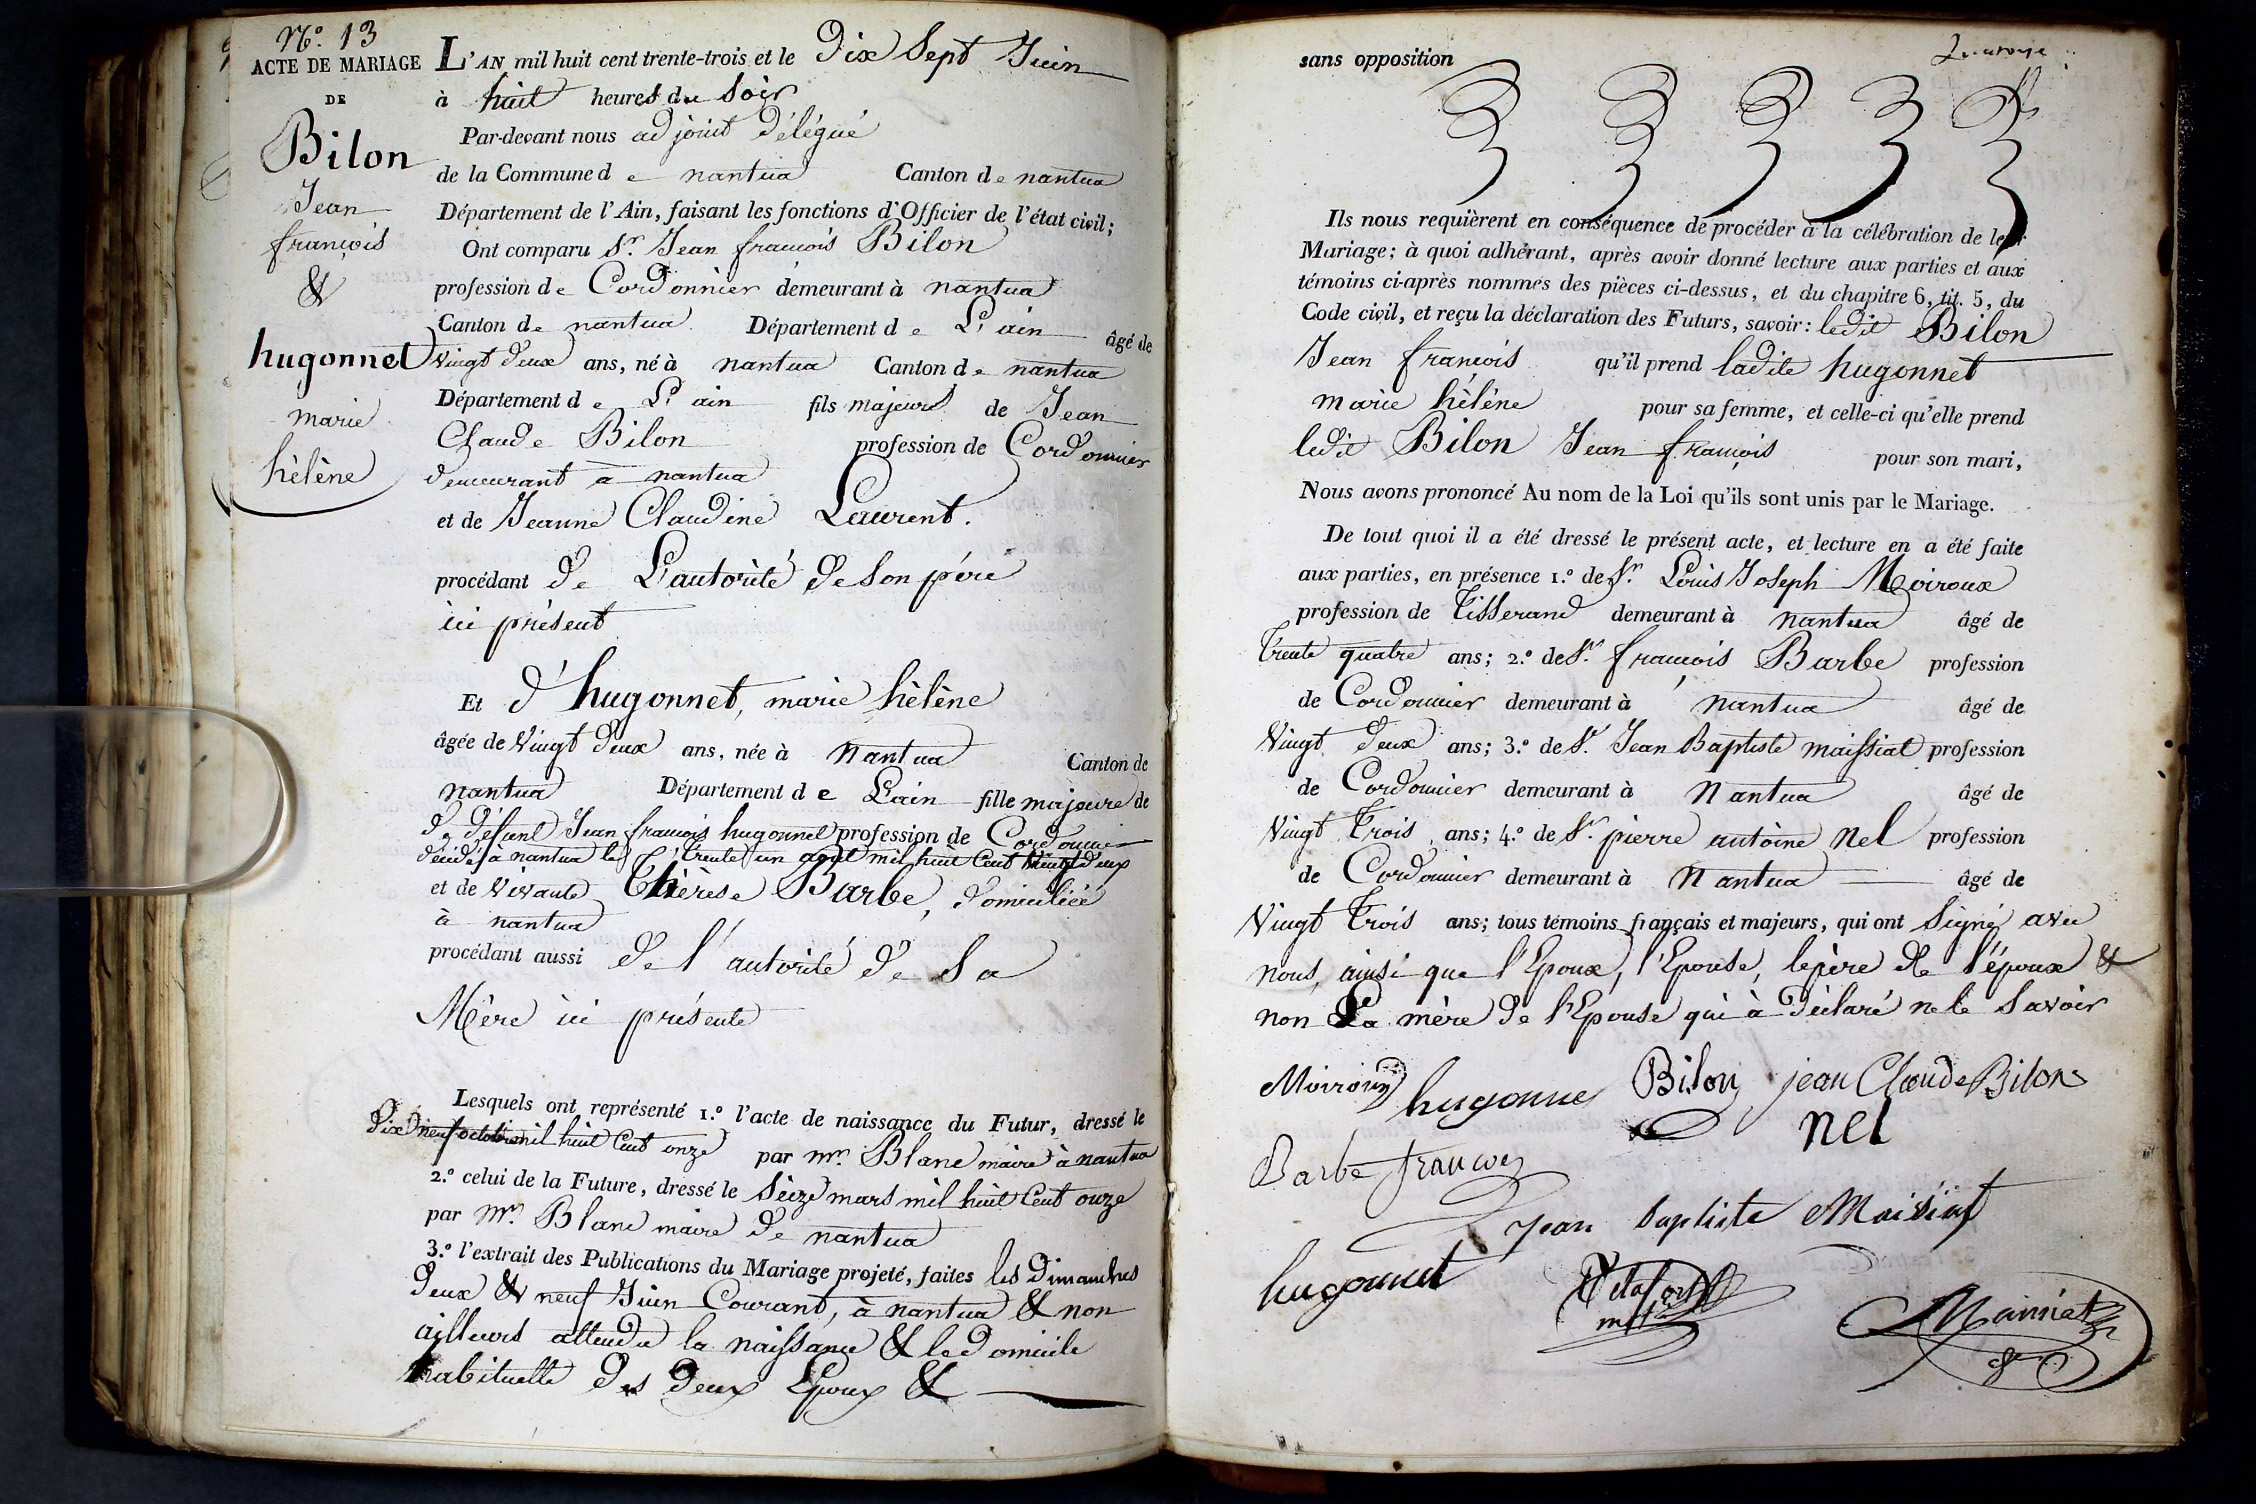 N.º 13
ACTE DE MARIAGE
DE
Bilon
Jean
françois
&
hugonnet
marie
hèlène
L'AN mil huit cent trente-trois et le Dix Sept Juin
à huit heures du Soir
Par-devant nous adjoint Délégué
de la Commune de nantua Canton de nantua
Département de l'Ain, faisant les fonctions d'Officier de l'état civil;
Ont comparu Sr. Jean françois Bilon
profession de Cordonnier demeurant à nantua
Canton de nantua Département de L'ain âgé de
Vingt deux ans, né à nantua Canton de nantua
Département de L'ain fils majeur de Jean
Claude Bilon profession de Cordonnier
demeurant à nantua
et de Jeanne Claudine Laurent.
procédant de L'autorité de Son père
ici présent
Et d'hugonnet, marie hèlène
âgée de Vingt deux ans, née à Nantua Canton de
nantua Département de Lain fille majeure de
de défunt Jean françois hugonnet profession de Cordonnier
décédé à nantua le trente un août mil huit Cent Vingt deux
et de Vivante Thèrese Barbe, domiciliée
à nantua
procédant aussi de l'autorité de Sa
Mère ici présente
Lesquels ont représenté 1.º l'acte de naissance du Futur, dressé le
Dix neuf octobre mil huit Cent onze par mr. Blanc maire à nantua
2.º celui de la Future, dressé le Seize mars mil huit Cent onze
par Mr. Blanc maire de nantua
3.º l'extrait des Publications du Mariage projeté, faites les Dimanches
deux & neuf Juin Courant, à nantua & non
ailleurs attendu la naissance & le domicile
habituelle des deux Epoux &
sans opposition
Ils nous requièrent en conséquence de procéder à la célébration de leur
Mariage; à quoi adhérant, après avoir donné lecture aux parties et aux
témoins ci-après nommés des pièces ci-dessus, et du chapitre 6, tit. 5, du
Code civil, et reçu la déclaration des Futurs, savoir: ledit Bilon
Jean françois qu'il prend ladite hugonnet
marie hélène pour sa femme, et celle-ci qu'elle prend
ledit Bilon Jean françois pour son mari,
Nous avons prononcé Au nom de la Loi qu'ils sont unis par le Mariage.
De tout quoi il a été dressé le présent acte, et lecture en a été faite
aux parties, en présence 1.º de Sr. Louis Joseph Moiroux
profession de Tisserand demeurant à nantua âgé de
trente quatre ans; 2.º de Sr. françois Barbe profession
de Cordonnier demeurant à nantua âgé de
Vingt deux ans; 3.º de Sr. Jean Baptiste maissiat profession
de Cordonnier demeurant à Nantua âgé de
Vingt Trois ans; 4.º de Sr. pierre antoine Nel profession
de Cordonnier demeurant à Nantua âgé de
Vingt Trois ans; tous témoins français et majeurs, qui ont Signé avec
nous, ainsi que l'Epoux, l'Epouse, le père de l'époux &
non La mère de l'Epouse qui à déclaré ne le Savoir
Moiroux hugonne Bilon jean Claude Bilon
nel
Barbe francois
Jean baptiste Maissiat
hugonnet